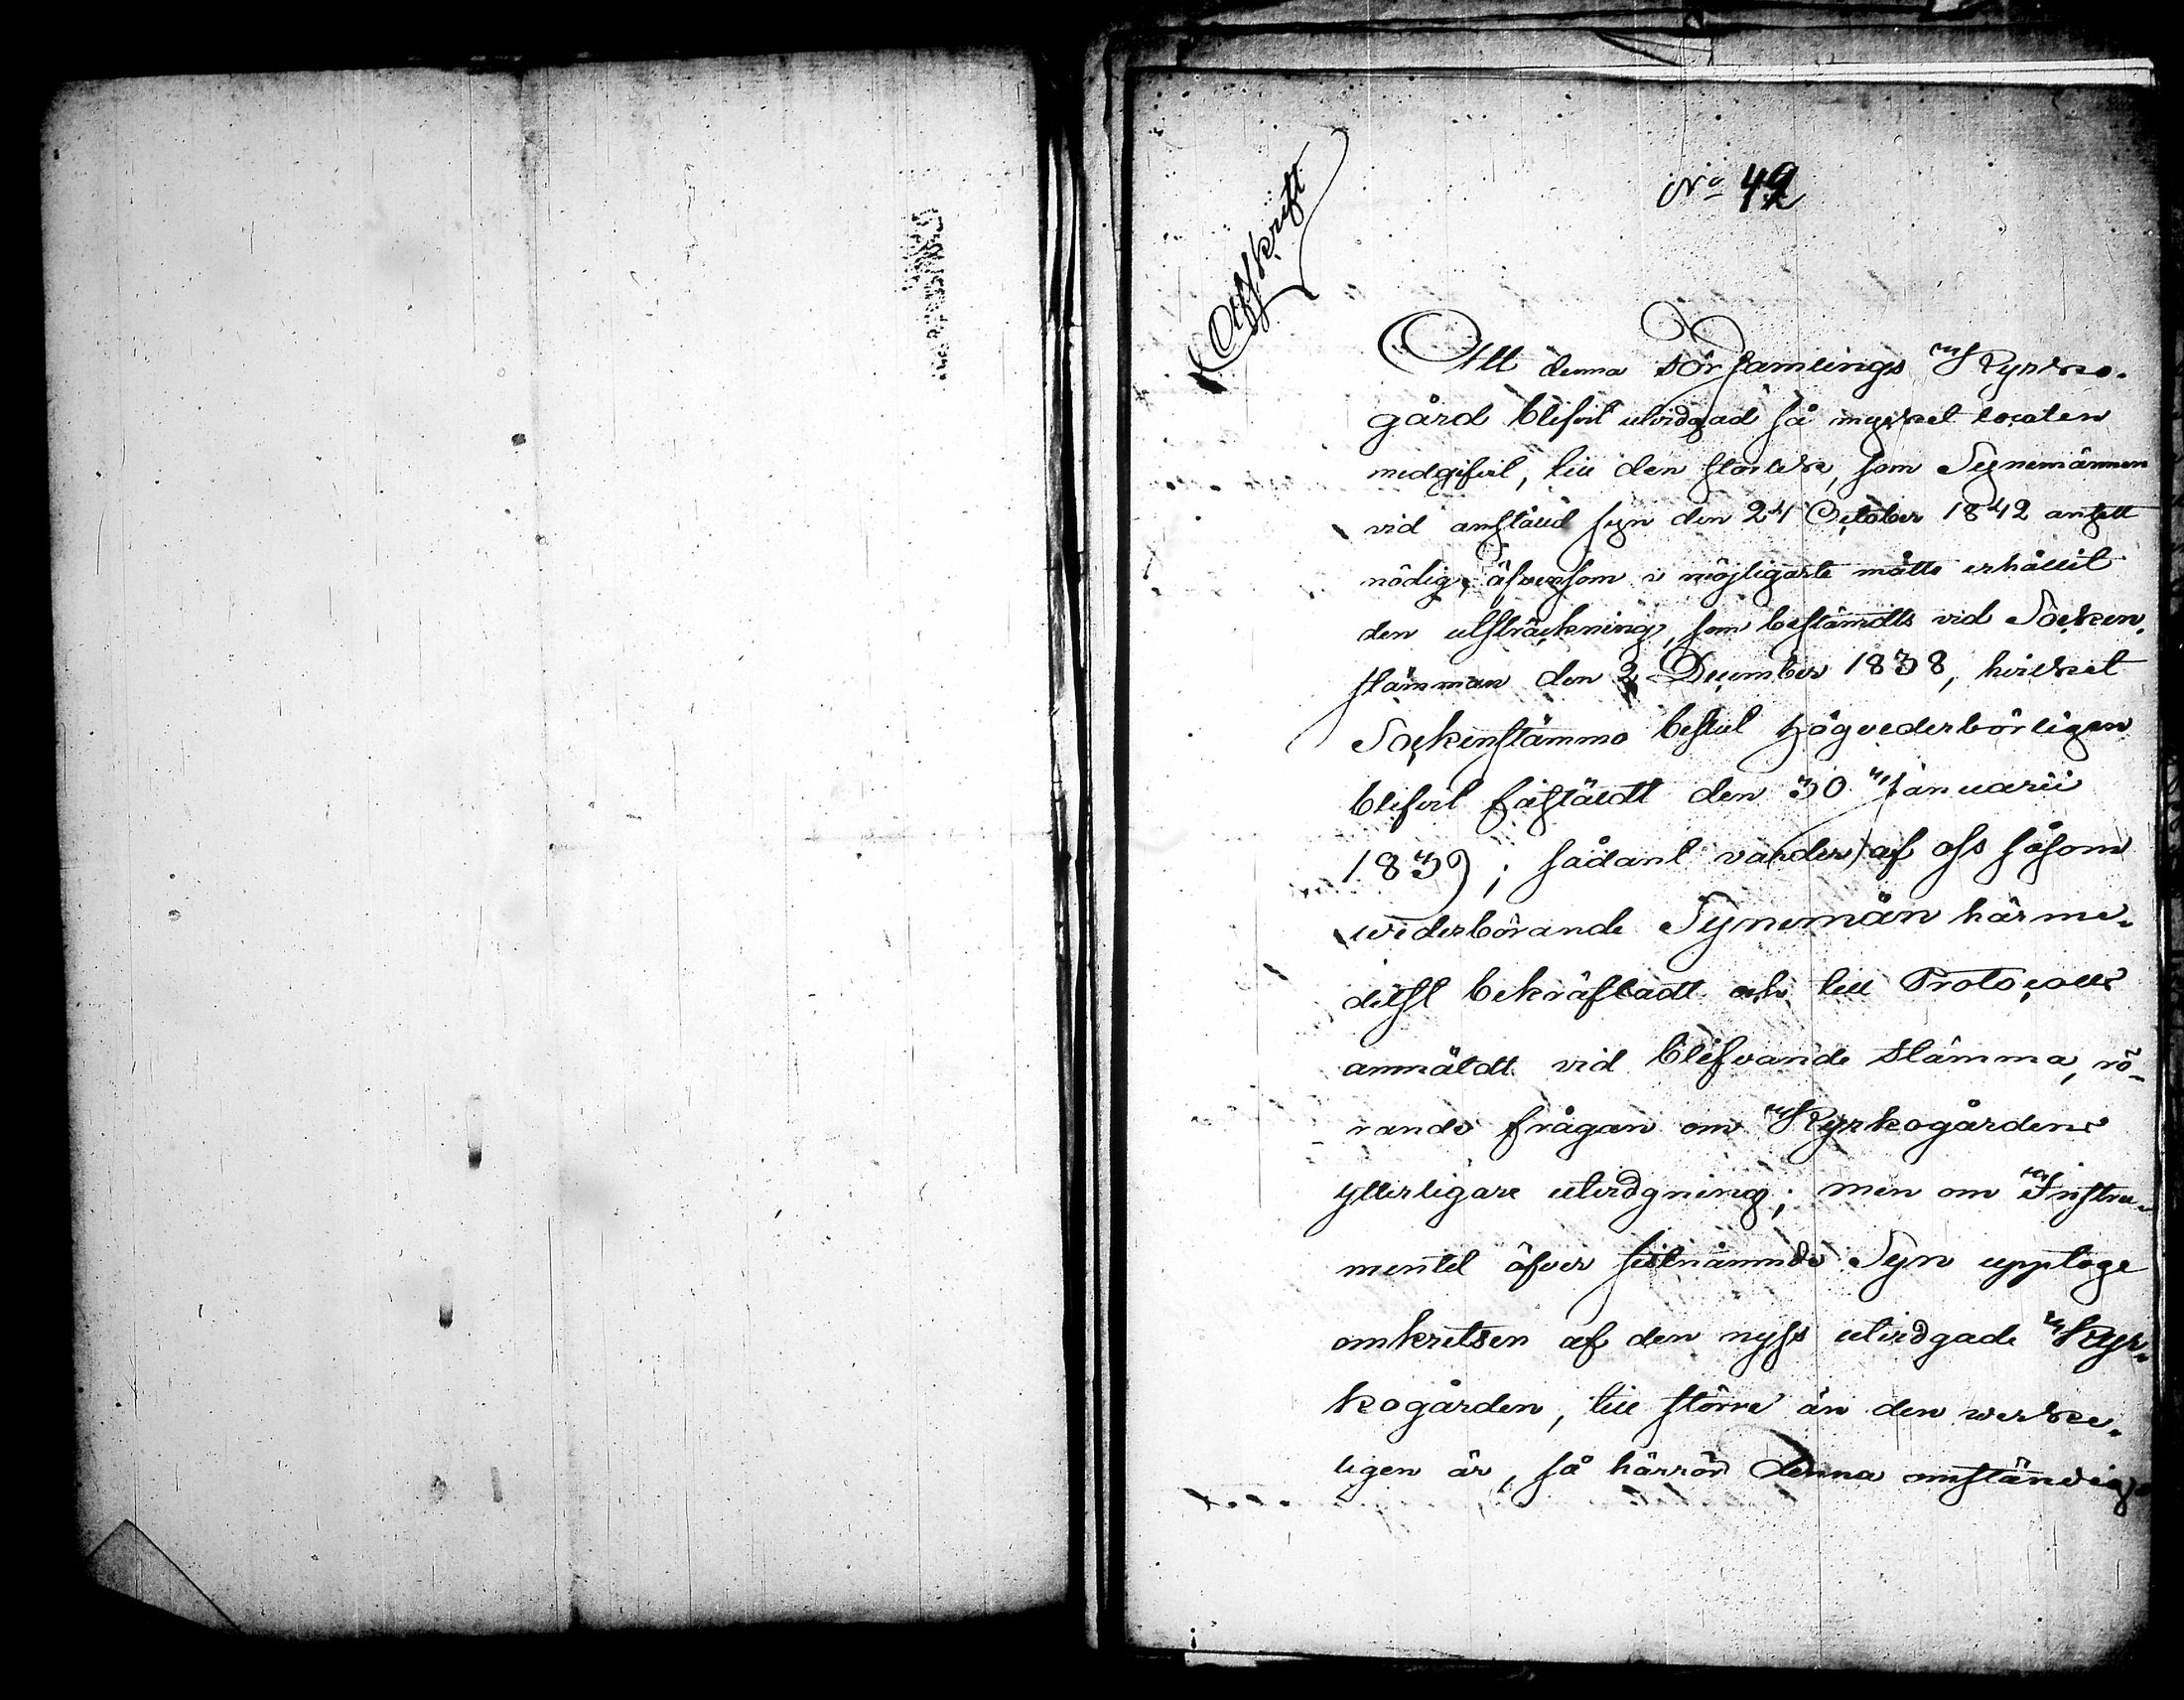 Afskrift
No 49
Att denna Församlings Kyrko-
gård blifvit utvidgad så mycket localen
medgifvit, till den storlek, som Synemännen
vid anstäld syn den 24 October 1842 ansett
nödig, äfvensom i möjligaste mätto erhållit
den utsträckning, som bestämdts vid Socken-
stämman den 2 December 1838, hvilket
Sockenstämmo beslut högvederbörligen
blifvit faststäldt den 30 Januarii
1839; sådant varder af oss såsom
wederbörande Synemän härme-
delst bekräftadt och till Protocoll
anmäldt vid blifvande stämma, rö-
rande frågan om Kyrkogårdens
ytterligare utvidgning; men om Instru-
mentet öfver sistnämnde Syn upptoge
omkretsen af den nyss utvidgade Kyr-
kogården, till större än den werke-
ligen är, så härrör denna omständig-